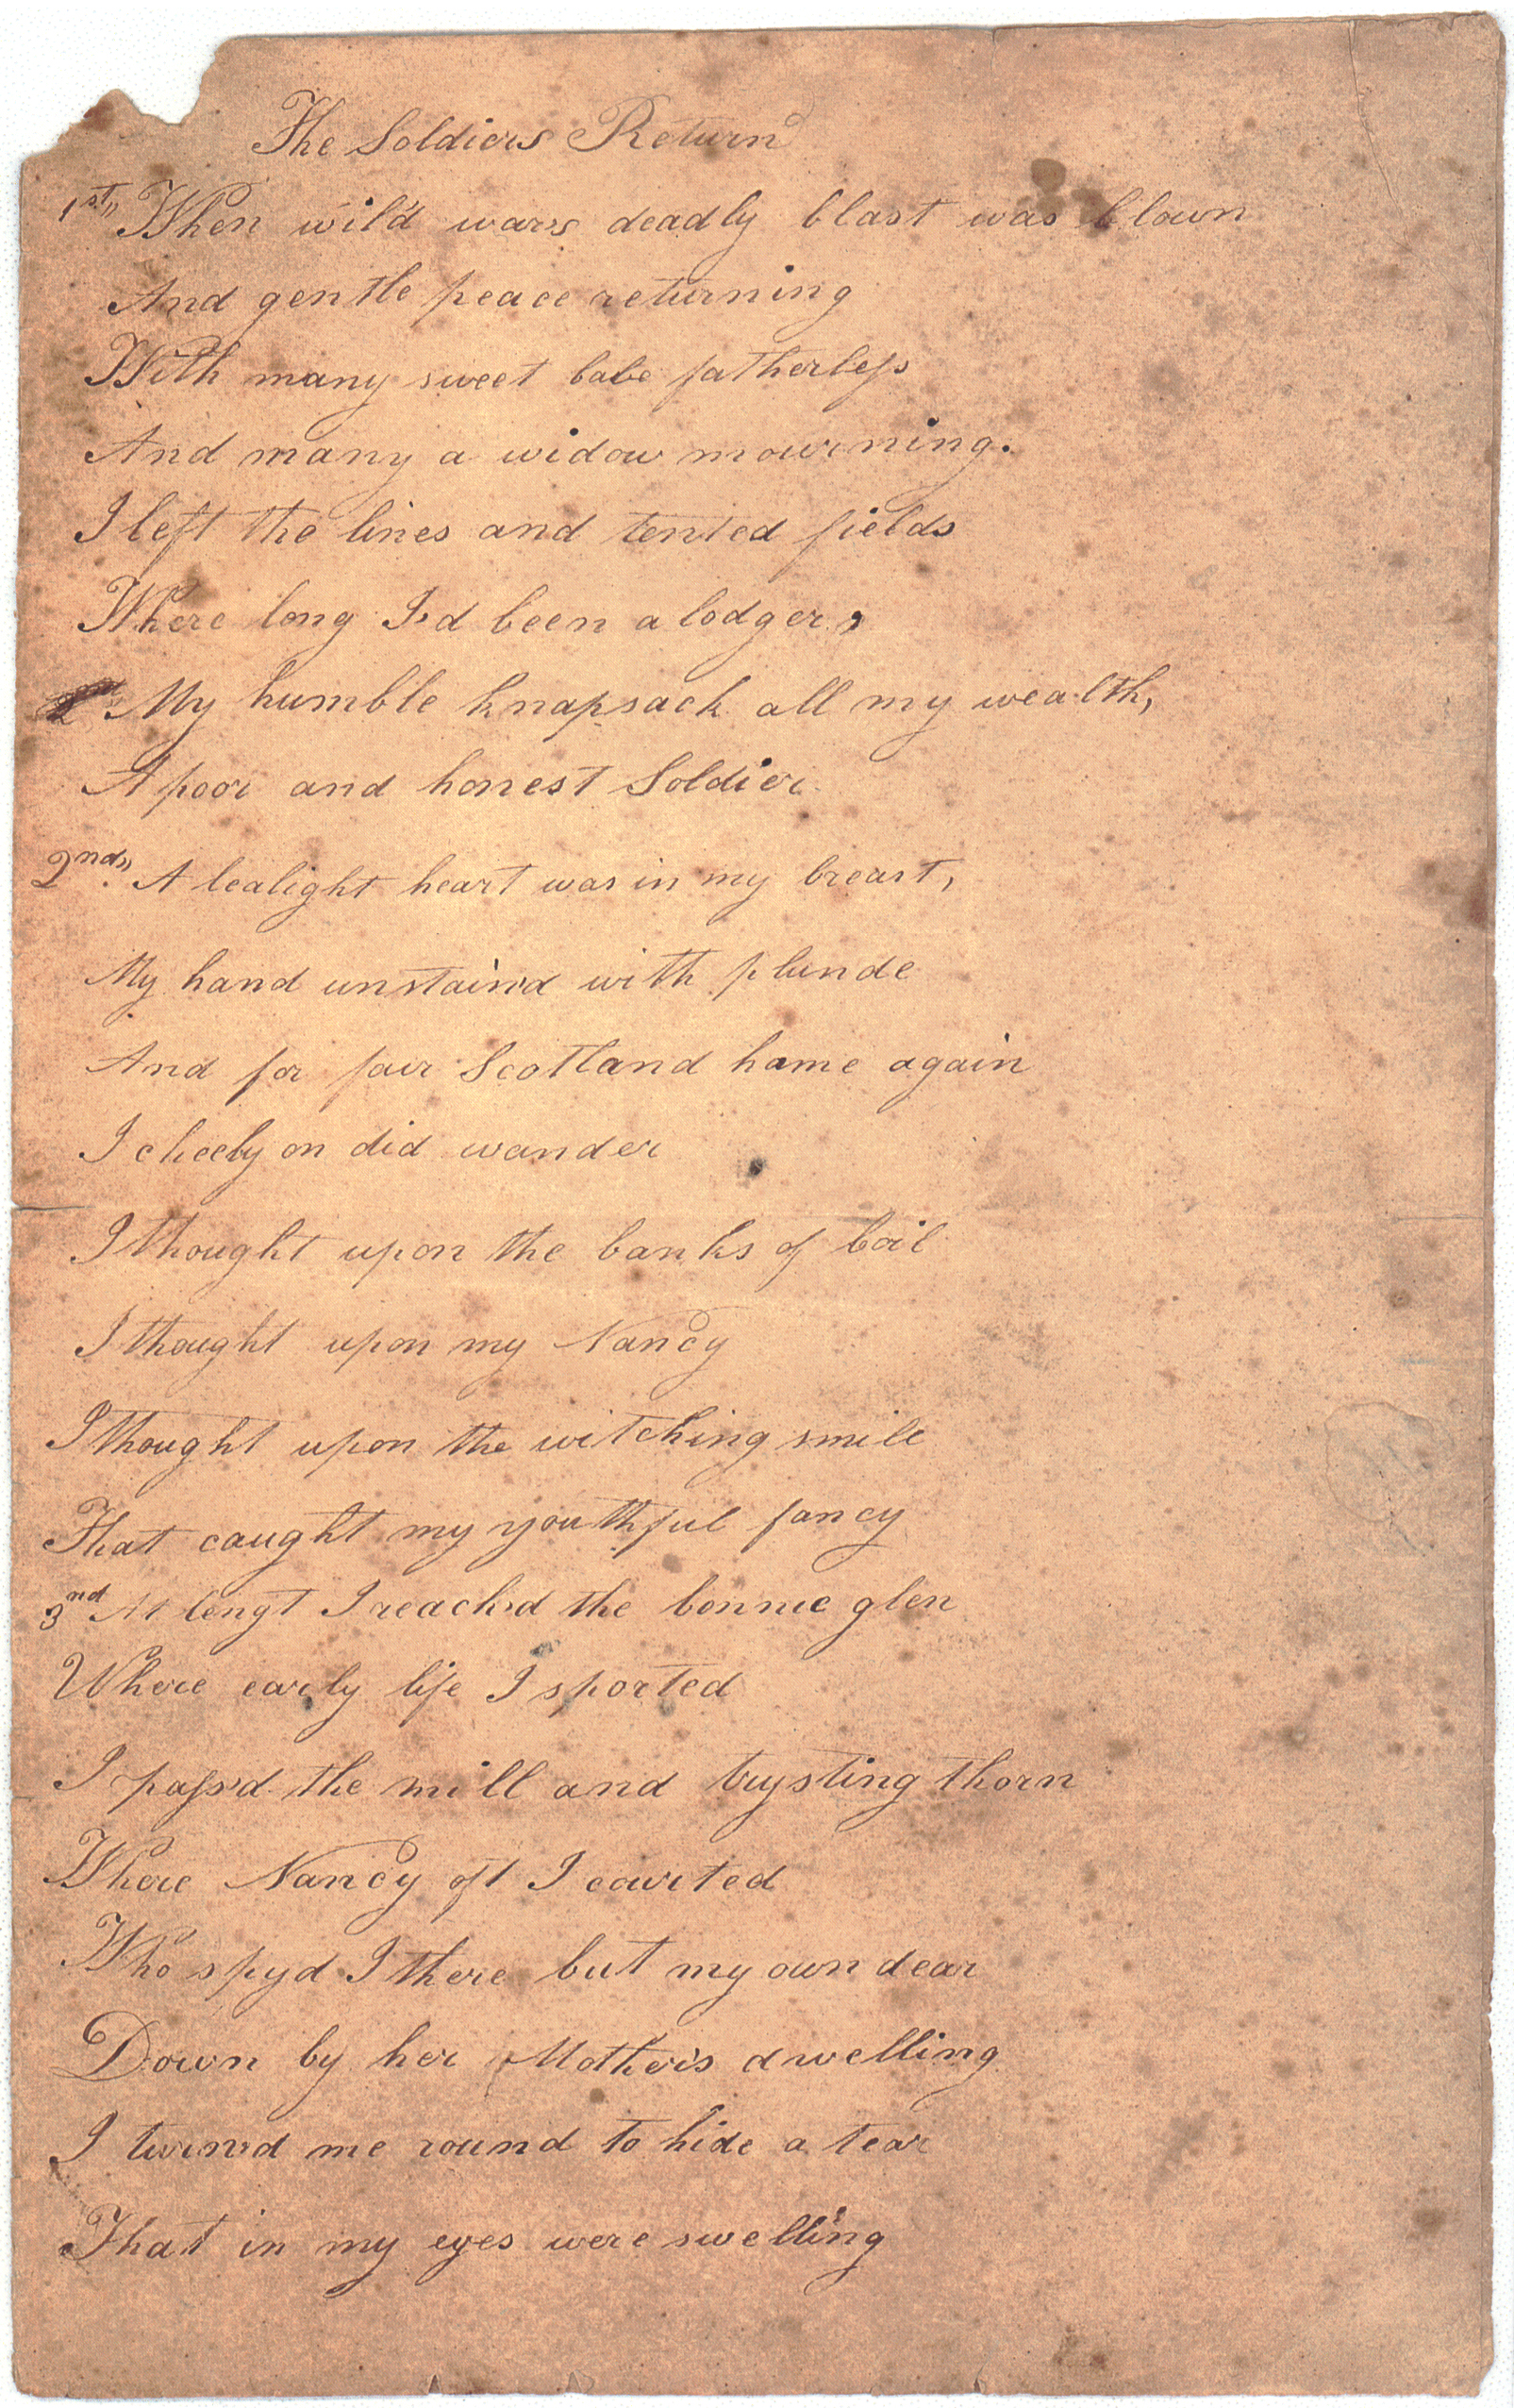 The Soldiers Return
1st,, When wil'd war's deadly blast was blown
And gentle peace returning
With many sweet babe fatherleſs
And many a widow mourning.
I left the lines and tented fields
Where long I'd been a lodger,
My humble knapsack all my wealth,
A poor and honest Soldier.
2nd,, A lealight heart was in my breast,
My hand unstain'd with plunde
And for fair Scotland hame again
I cheely on did wander
I thought upon the banks of Coil
I thought upon my Nancy
I thought upon the witching smile
That caught my youthful fancy
3nd At lengt I reach'd the bonnie glen
Where early life I sported
I paſs'd the mill and trysting thorn
Where Nancy oft I courted
Who spy'd I there but my own dear
Down by her Mother's dwelling
I turn'd me round to hide a tear
That in my eyes were swelling